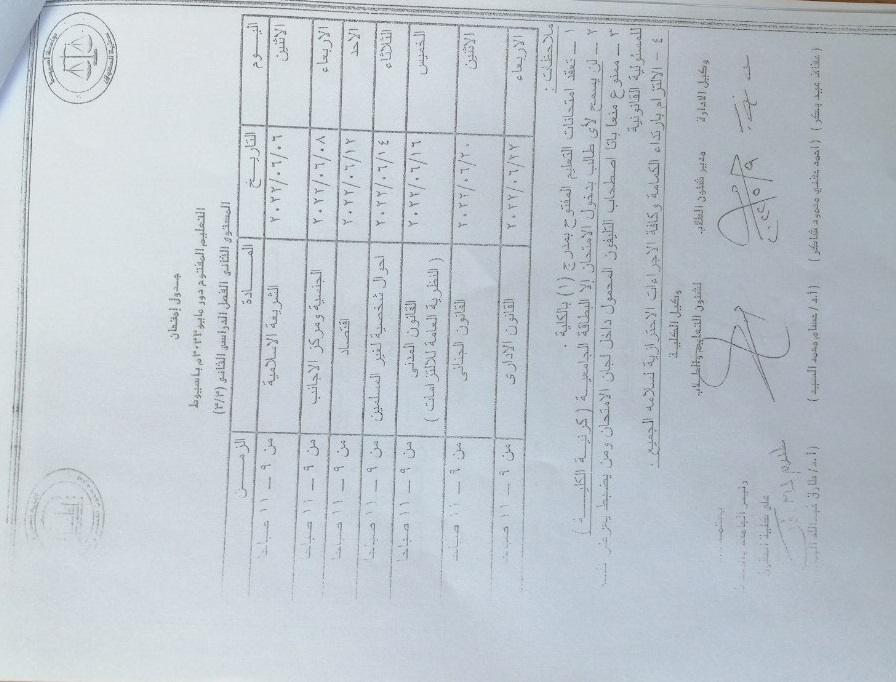 جدول إمتحان
التعليم المفتوح دور مايو ٢٠٢٢م بأسيوط
المستوى الثانى الفصل الدراسى الثانى (٢/٢)
اليـــوم التاريـــخ المـــــادة الزمـــن
الاثنين ٢٠٢٢/٠٦/٠٦ الشريعة الاسلامية من ٩ – ١١ صباحا
الاربعاء ٢٠٢٢/٠٦/٠٨ الجنسية ومركز الاجانب من ٩ – ١١ صباحا
الاحد ٢٠٢٢/٠٦/١٢ اقتصاد من ٩ – ١١ صباحا
الثلاثاء ٢٠٢٢/٠٦/١٤ احوال شخصية لغير المسلمين من ٩ – ١١ صباحا
الخميس ٢٠٢٢/٠٦/١٦ القانون المدنى من ٩ – ١١ صباحا
( النظرية العامة للالتزامات )
الاثنين ٢٠٢٢/٠٦/٢٠ القانون الجنائى من ٩ – ١١ صباحا
الاربعاء ٢٠٢٢/٠٦/٢٢ القانون الادارى من ٩ – ١١ صباحا
ملاحظات :
١ – تعقد امتحانات التعليم المفتوح بمدرج (١) بالكلية .
٢ – لن يسمح لأى طالب بدخول الامتحان إلا البطاقة الجامعية ( كرنيـــة الكليـــــة )
٣ – ممنوع منعا باتا اصطحاب التليفون المحمول داخل لجان الامتحان ومن يضبط يعرض نفسه
للمسئولية القانونية
٤ – الالتزام بارتداء الكمامة وكافة الاجراءات الاحترازية لسلامه الجميع .
وكيل الكلية
وكيل الادارة مدير شئون الطلاب لشئون التعليم والطلاب
يعتمد
( أحمد محمود شاكر ) ( أ.د/ عصام محمد السيد ) ( أ.د/ طارق عبدالله